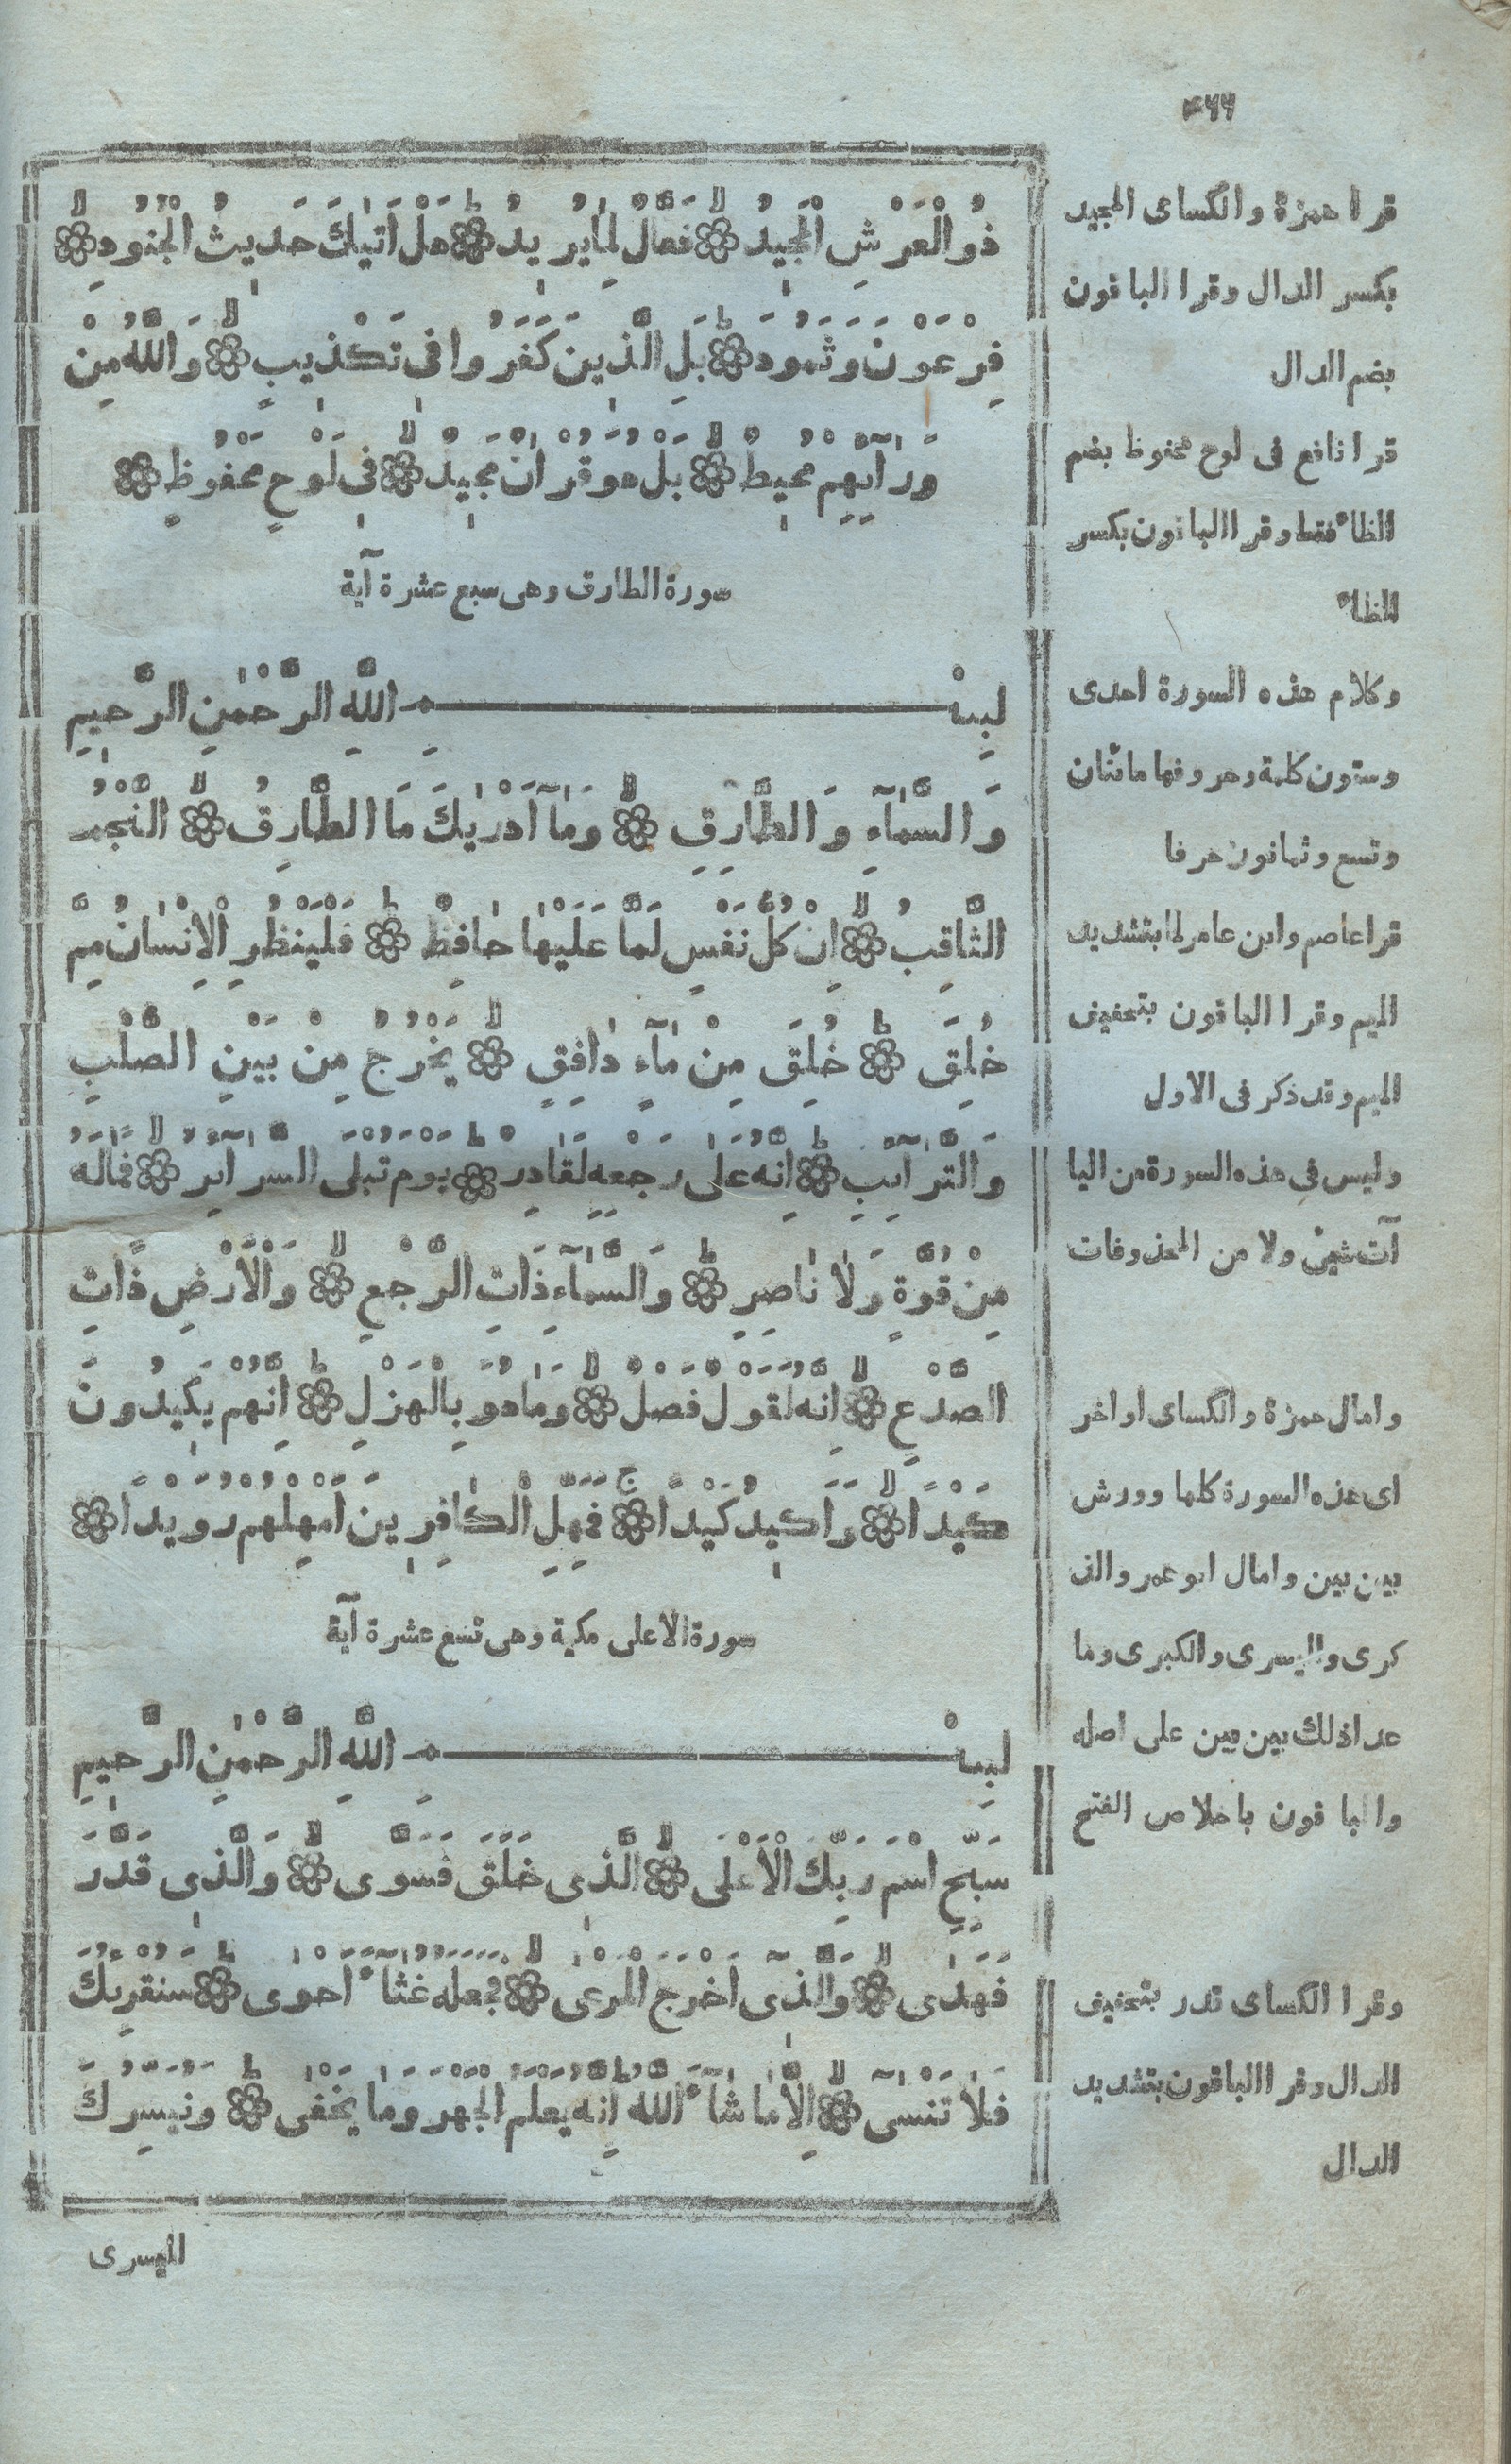 ۴۶۶
ذُو الْعَرْشِ الْمَجِيدُ ۙ فَعَّالٌ لِمَا يُرِيدُ ۗ هَلْ اَتٰيكَ حَدِيثُ الْجُنُودِ ۙ
فِرْعَوْنَ وَثَمُودَ ۗ بَلِ الَّذِينَ كَفَرُوا فِى تَكْذِيبٍ ۙ وَاللَّهُ مِنْ
وَرَآئِهِمْ مُحِيطٌ ۙ بَلْ هُوَ قُرْاٰنٌ مَجِيدٌ ۙ فِى لَوْحٍ مَحْفُوظٍ
سورة الطارق وهى سبع عشرة آية
بِسْمِ اللَّهِ الرَّحْمٰنِ الرَّحِيمِ
وَالسَّمَآءِ وَالطَّارِقِ ۙ وَمَآ اَدْرٰيكَ مَا الطَّارِقُ ۙ النَّجْمُ
الثَّاقِبُ ۙ اِنْ كُلُّ نَفْسٍ لَمَّا عَلَيْهَا حَافِظٌ ۗ فَلْيَنْظُرِ الْاِنْسَانُ مِمَّ
خُلِقَ ۗ خُلِقَ مِنْ مَآءٍ دَافِقٍ ۙ يَخْرُجُ مِنْ بَيْنِ الصُّلْبِ
وَالتَّرَآئِبِ ۗ اِنَّهُ عَلٰى رَجْعِهِ لَقَادِرٌ ۗ يَوْمَ تُبْلَى السَّرَآئِرُ ۙ فَمَا لَهُ
مِنْ قُوَّةٍ وَلَا نَاصِرٍ ۗ وَالسَّمَآءِ ذَاتِ الرَّجْعِ ۙ وَالْاَرْضِ ذَاتِ
الصَّدْعِ ۙ اِنَّهُ لَقَوْلٌ فَصْلٌ ۙ وَمَا هُوَ بِالْهَزْلِ ۗ اِنَّهُمْ يَكِيدُونَ
كَيْدًا ۙ وَاَكِيدُ كَيْدًا ۚ فَمَهِّلِ الْكَافِرِينَ اَمْهِلْهُمْ رُوَيْدًا
سورة الاعلى مكية وهى تسع عشرة آية
بِسْمِ اللَّهِ الرَّحْمٰنِ الرَّحِيمِ
سَبِّحِ اسْمَ رَبِّكَ الْاَعْلَى ۙ الَّذِى خَلَقَ فَسَوَّى ۙ وَالَّذِى قَدَّرَ
فَهَدٰى ۙ وَالَّذِىٓ اَخْرَجَ الْمَرْعٰى ۙ فَجَعَلَهُ غُثَآءً اَحْوٰى ۗ سَنُقْرِئُكَ
فَلَا تَنْسٰىٓ ۙ اِلَّا مَا شَآءَ اللَّهُ اِنَّهُ يَعْلَمُ الْجَهْرَ وَمَا يَخْفٰى ۗ وَنُيَسِّرُكَ
لليسرى
قرا حمزة والكساى المجيد
بكسر الدال وقرا الباقون
بضم الدال
قرا نافع فى لوح محفوظ بضم
الظاء فقط وقرا الباقون بكسر
الظاء
وكلام هذه السورة احدى
وستون كلمة وحروفها مائتان
وتسع وثمانون حرفا
قرا عاصم وابن عامر لما بتشديد
الميم وقرا الباقون بتخفيف
الميم وقد ذكر فى الاول
وليس فى هذه السورة من اليا
آت شيئ ولا من المحذوفات
وامال حمزة والكساى اواخر
اى هذه السورة كلها وورش
بين بين وامال ابو عمرو الذ
كرى واليسرى والكبرى وما
عدا ذلك بين بين على اصله
والباقون باخلاص الفتح
وقرا الكساى قدر بتخفيف
الدال وقرا الباقون بتشديد
الدال